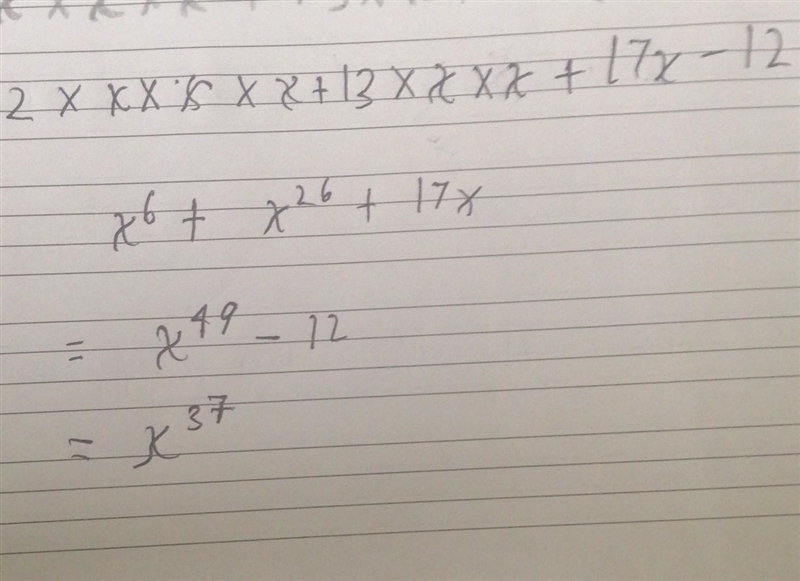 2 × x × x × x + 13 × x × x + 17x - 12
x^6 + x^26 + 17x
= x^49 - 12
= x^37